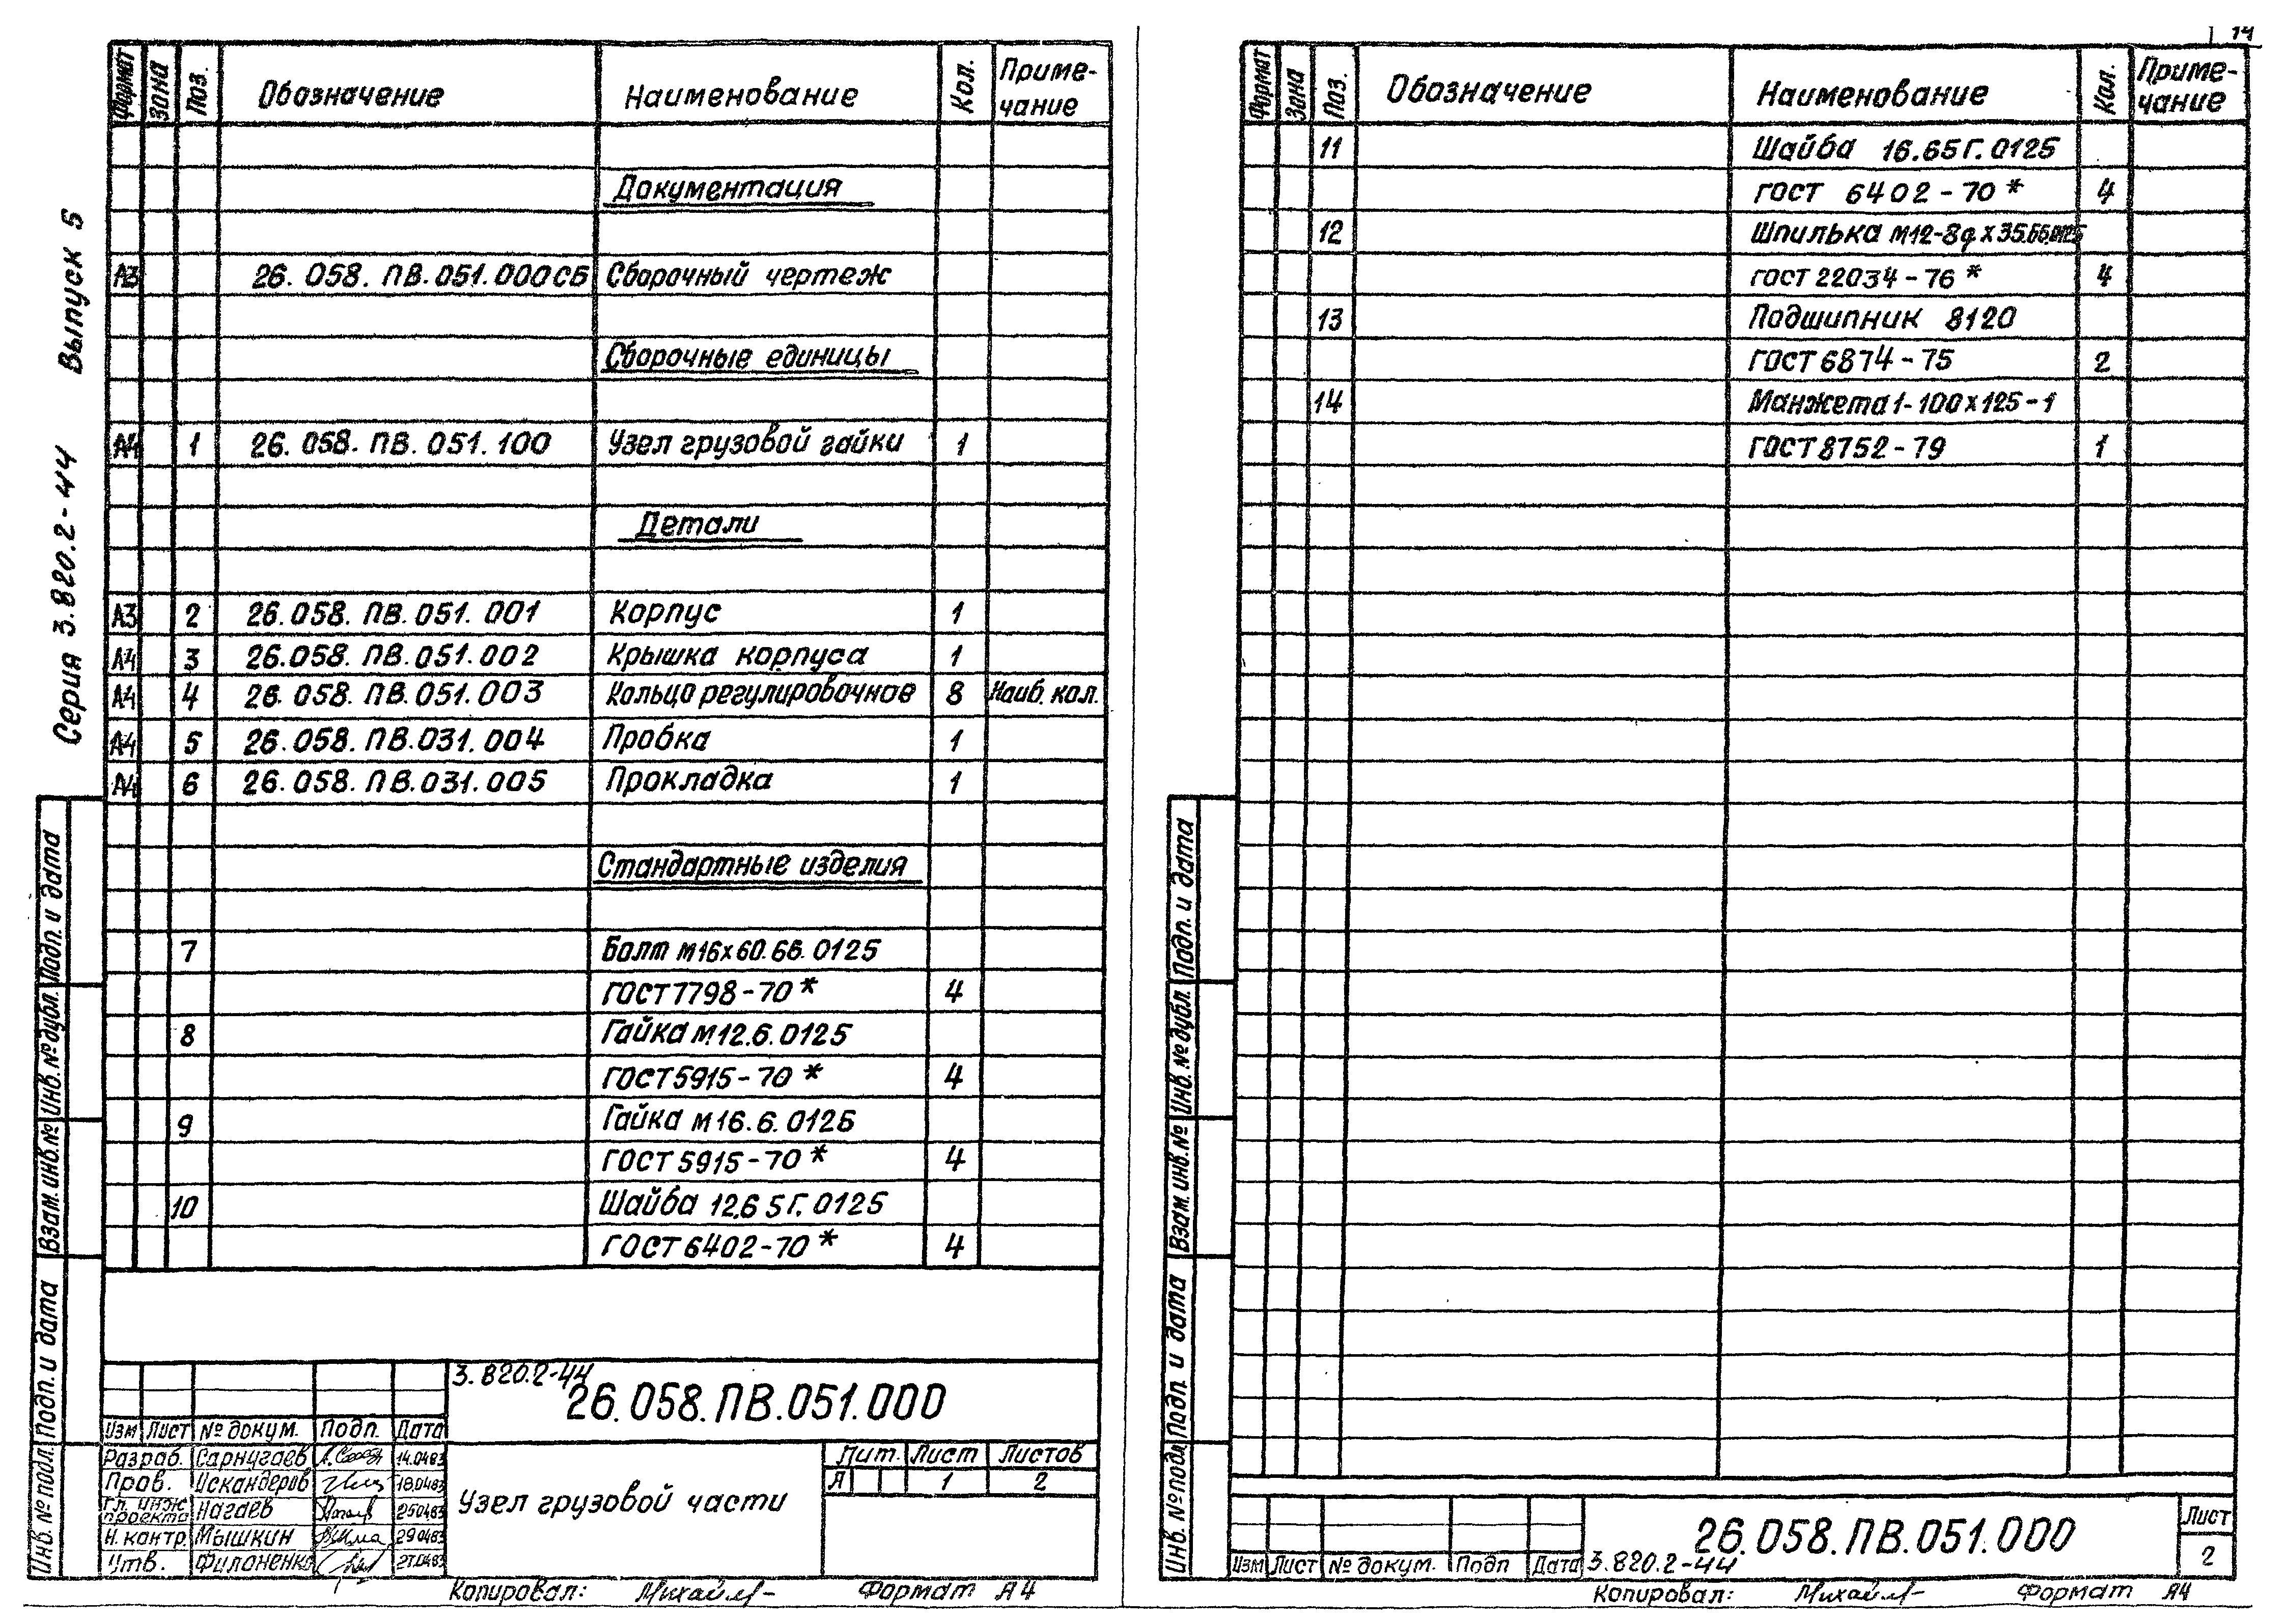 Серия 3.820.2-44 Выпуск 5
Формат Зона Поз. Обозначение Наименование Кол. Приме-чание
Документация
А3 26.058.ПВ.051.000СБ Сборочный чертеж
Сборочные единицы
А4 1 26.058.ПВ.051.100 Узел грузовой гайки 1
Детали
А3 2 26.058.ПВ.051.001 Корпус 1
А4 3 26.058.ПВ.051.002 Крышка корпуса 1
А4 4 26.058.ПВ.051.003 Кольцо регулировочное 8 Наиб. кол.
А4 5 26.058.ПВ.031.004 Пробка 1
А4 6 26.058.ПВ.031.005 Прокладка 1
Стандартные изделия
7 Болт М16х60.66.0125
ГОСТ 7798-70* 4
8 Гайка М12.6.0125
ГОСТ 5915-70* 4
9 Гайка М16.6.0125
ГОСТ 5915-70* 4
10 Шайба 12.65Г.0125
ГОСТ 6402-70* 4
Подп. и дата
Инв. № дубл.
Взам. инв. №
Подп. и дата
Инв. № подл.
3.820.2-44
26.058.ПВ.051.000
Изм Лист № докум. Подп. Дата
Разраб. Сарнугаев 14.04.83
Пров. Искандеров 18.04.83
Гл. инж. проекта Нагаев 25.04.83
Н. контр. Мышкин 29.04.83
Утв. Филоненко 27.04.83
Узел грузовой части
Лит. Лист Листов
Я 1 2
Копировал: Формат А4
14
Формат Зона Поз. Обозначение Наименование Кол. Приме-чание
11 Шайба 16.65Г.0125
ГОСТ 6402-70* 4
12 Шпилька М12-8gх35.66.0125
ГОСТ 22034-76* 4
13 Подшипник 8120
ГОСТ 6874-75 2
14 Манжета 1-100х125-1
ГОСТ 8752-79 1
Подп. и дата
Инв. № дубл.
Взам. инв. №
Подп. и дата
Инв. № подл
26.058.ПВ.051.000
Лист
2
Изм Лист № докум. Подп Дата 3.820.2-44
Копировал: Формат А4